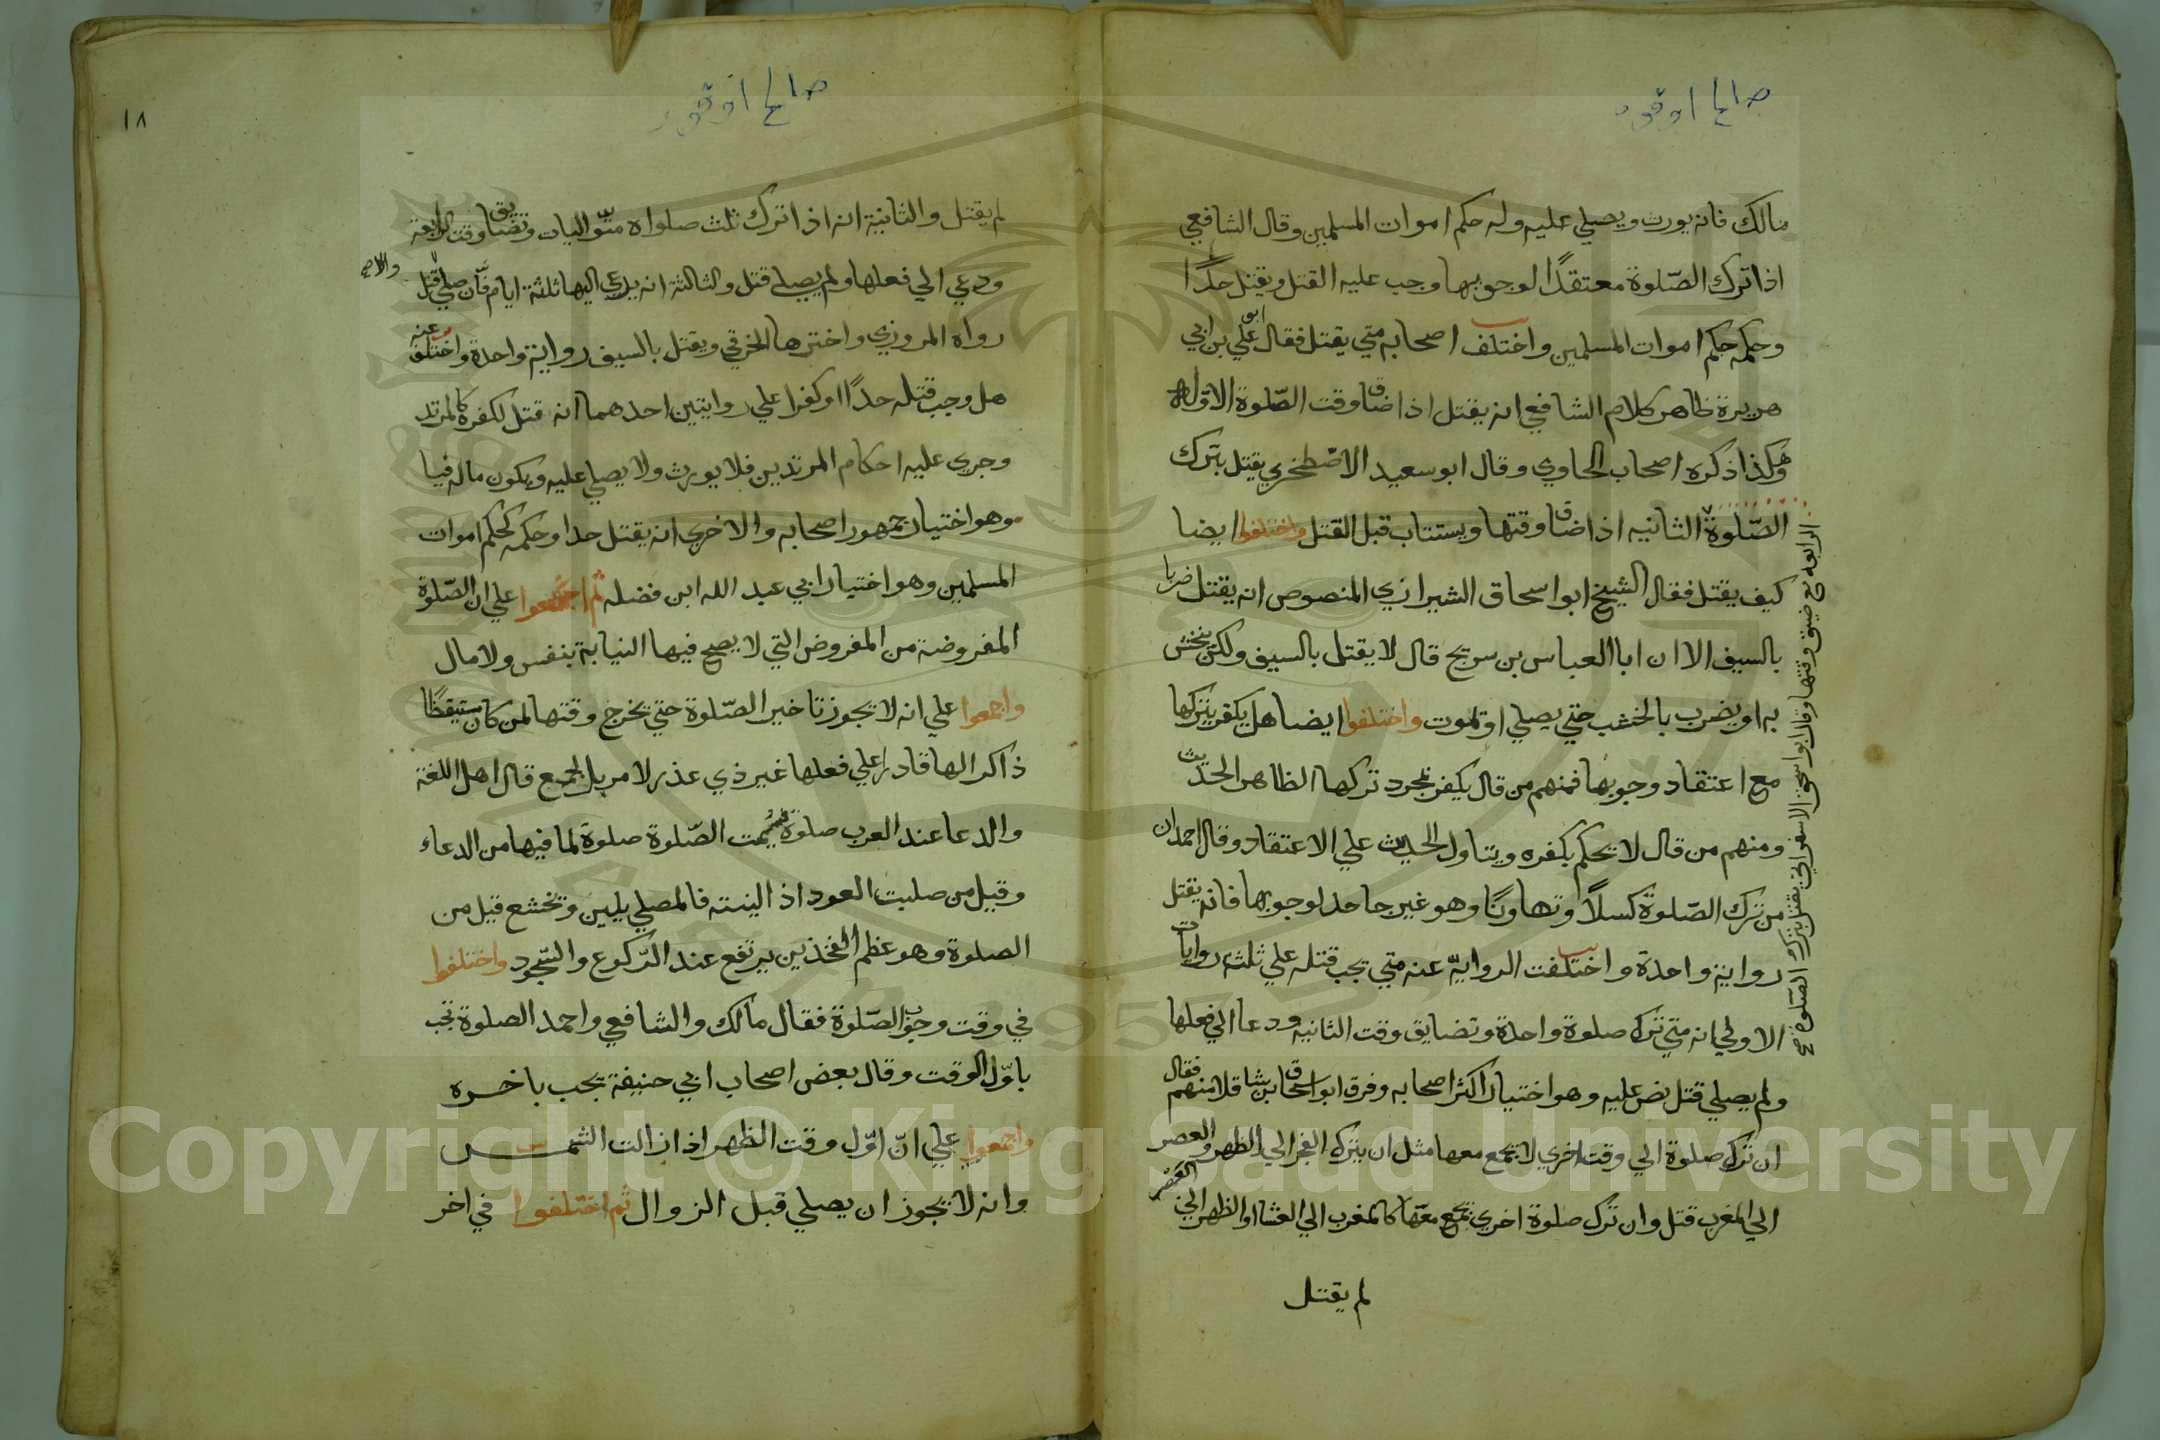 صالح اوقور
مالك فانه يورث ويصلي عليه وله حكم اموات المسلمين وقال الشافعي
اذا ترك الصّلوة معتقدًا لوجوبها وجب عليه القتل ويقتل حدًا
وحكمه حكم اموات المسلمين واختلف اصحابه متي يقتل فقال ابو علي بن ابي
هريرة ظاهر كلام الشافعي انه يقتل اذا ضاق وقت الصّلوة الاوّله
وهكذا ذكره اصحاب الحاوي وقال ابو سعيد الاصْطخري يقتل بترك
الصّلوة الثانيه اذا ضاق وقتها ويستتاب قبل القتل واختلفوا ايضا
كيف يقتل فقال الشيخ ابو اسحاق الشيرازي المنصوص انه يقتل ضربا
بالسيف الا ان ابا العباس بن سريج قال لا يقتل بالسيف ولكن ينخش
به او يضرب بالخشب حتي يصلي او يموت واختلفوا ايضا هل يكفر بتركها
مع اعتقاد وجوبها فمنهم من قال يكفر بمجرد تركها الظاهر الحديث
ومنهم من قال لا يحكم بكفره ويتاول الحديث علي الاعتقاد وقال احمد ان
من ترك الصّلوة كسلاً او تهاونًا وهو غير جاحد لوجوبها فانه يقتل
رواية واحدة واختلفت الرواية عنه متي يجب قتله علي ثلثه روايات
الاولي انه متي ترك صلوة واحدة وتضايق وقت الثانية ودعا الي فعلها
ولم يصلي قتل نص عليه وهو اختيار اكثر اصحابه وفرق ابو اسحاق ابن شاقلا منهم فقال
ان ترك صلوة الي وقت اخري لا تجمع معها مثل ان يترك الفجر الي الظهر والعصر
الي المغرب قتل وان ترك صلوة اخري تجمع معها كالمغرب الي العشا او الظهر الي العصر
لم يقتل
الرابعه مع ضيق وقتها وقال ابو اسحق الاسفرايني يقتل بترك الصّلوة
صالح اوقور
١٨
لم يقتل والثانية انه اذا ترك ثلث صلواه متواليات وتضايق وقت الرابعة
ودعي الي فعلها ولم يصلي قتل والثالثة انه يدعي اليها ثلثة ايام فان صلي والا قتل
رواه المروزي واخترها الخرقي ويقتل بالسيف رواية واحدة واختلف عنه
هل وجب قتله حدًا او كفرا علي روايتين احدهما انه قتل لكفره كالمرتد
وجري عليه احكام المرتدين فلا يورث ولا يصلي عليه ويكون ماله فيا
وهو اختيار جمهور اصحابه والاخري انه يقتل حدا وحكمه كحكم اموات
المسلمين وهو اختيار ابي عبد الله ابن فضله ثم اجمعوا علي ان الصّلوة
المفروضة من المفروض التي لا يصح فيها النيابة بنفس ولا مال
واجمعوا علي انه لا يجوز تاخير الصّلوة حتي يخرج وقتها لمن كان مستيقظًا
ذاكرا لها قادرا علي فعلها غير ذي عذر لا مريد لجمع قال اهل اللغة
والدعا عند العرب صلوة فسُميت الصّلوة صلوة لما فيها من الدعاء
وقيل من صليت العود اذ الينته فالمصلي يلين وتخشع قيل من
الصلوة وهو عظم الفخذين يرتفع عند الرّكوع والسّجود واختلفوا
في وقت وجوب الصّلوة فقال مالك والشافعي واحمد الصلوة تجب
باوّل الوقت وقال بعض اصحاب ابي حنيفة يجب باخره
واجمعوا علي انّ اوّل وقت الظهر اذا زالت الشمس
وانه لا يجوز ان يصلي قبل الزوال ثم اختلفوا في اخر
Copyright © King Saud University